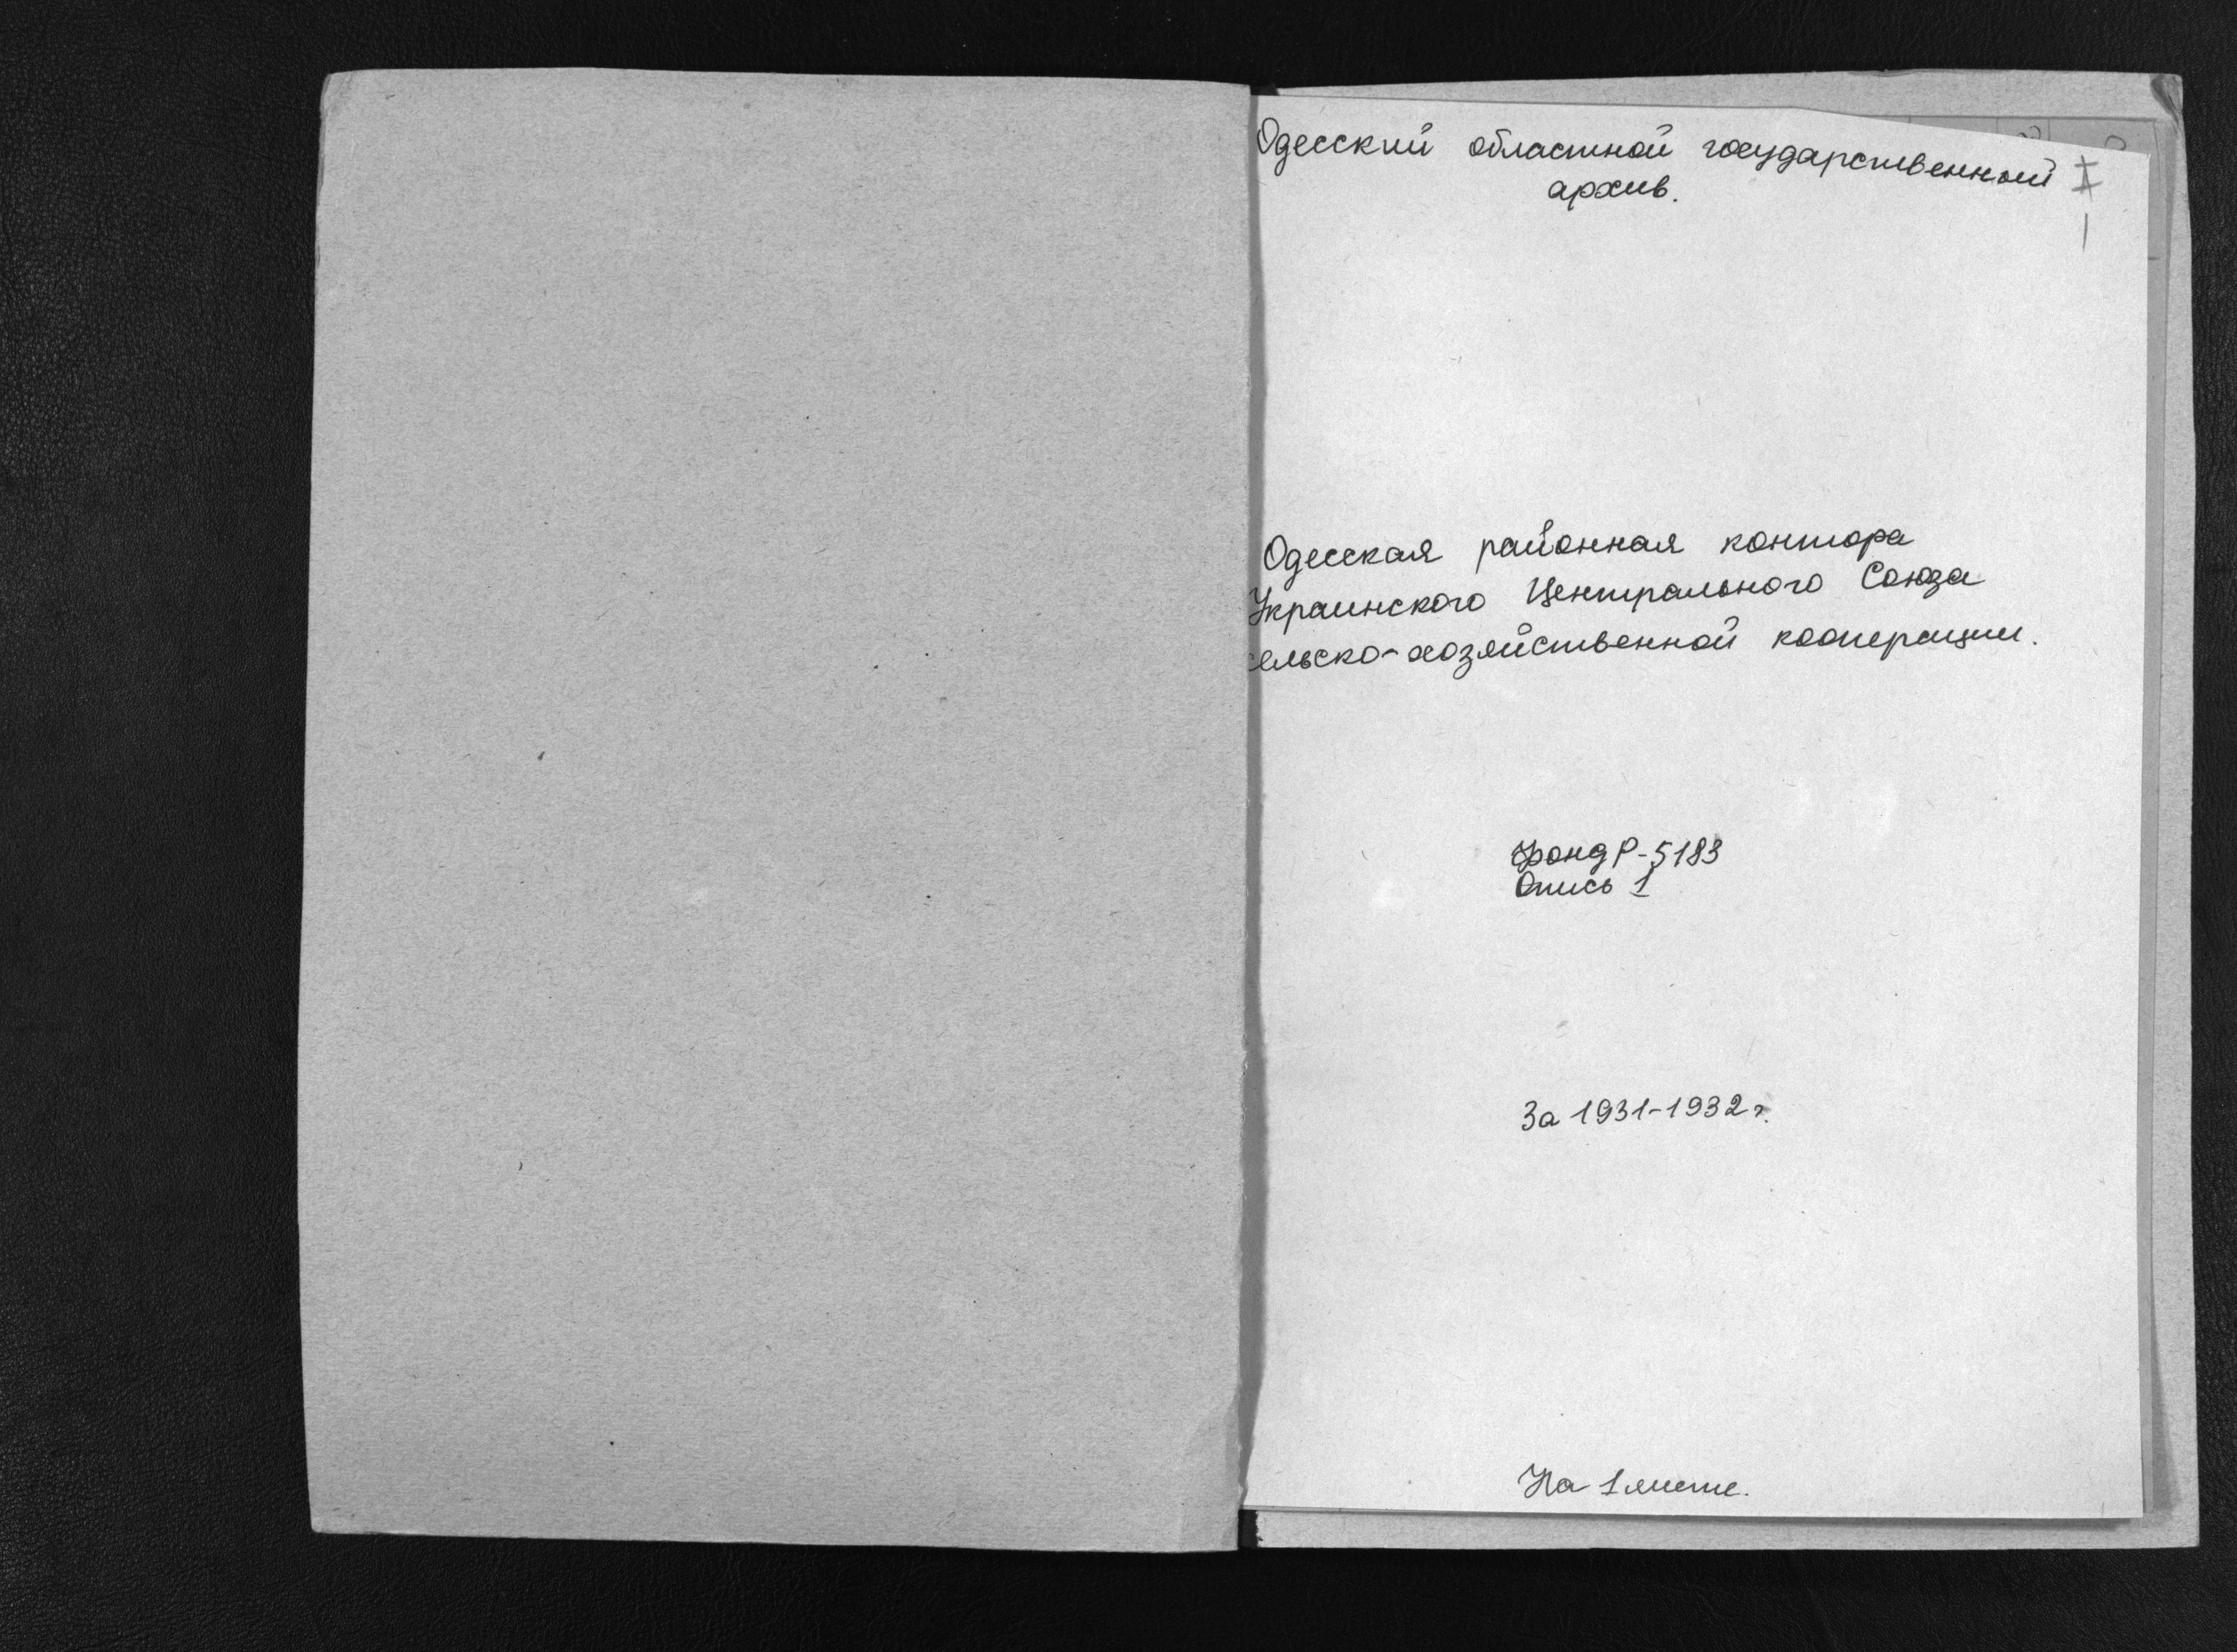 Одесский областной государственный
архив.
Одесская районная контора
Украинского Центрального Союза
сельско-хозяйственной кооперации.
Фонд Р-5183
Опись 1
За 1931-1932 г.
На 1 листе.